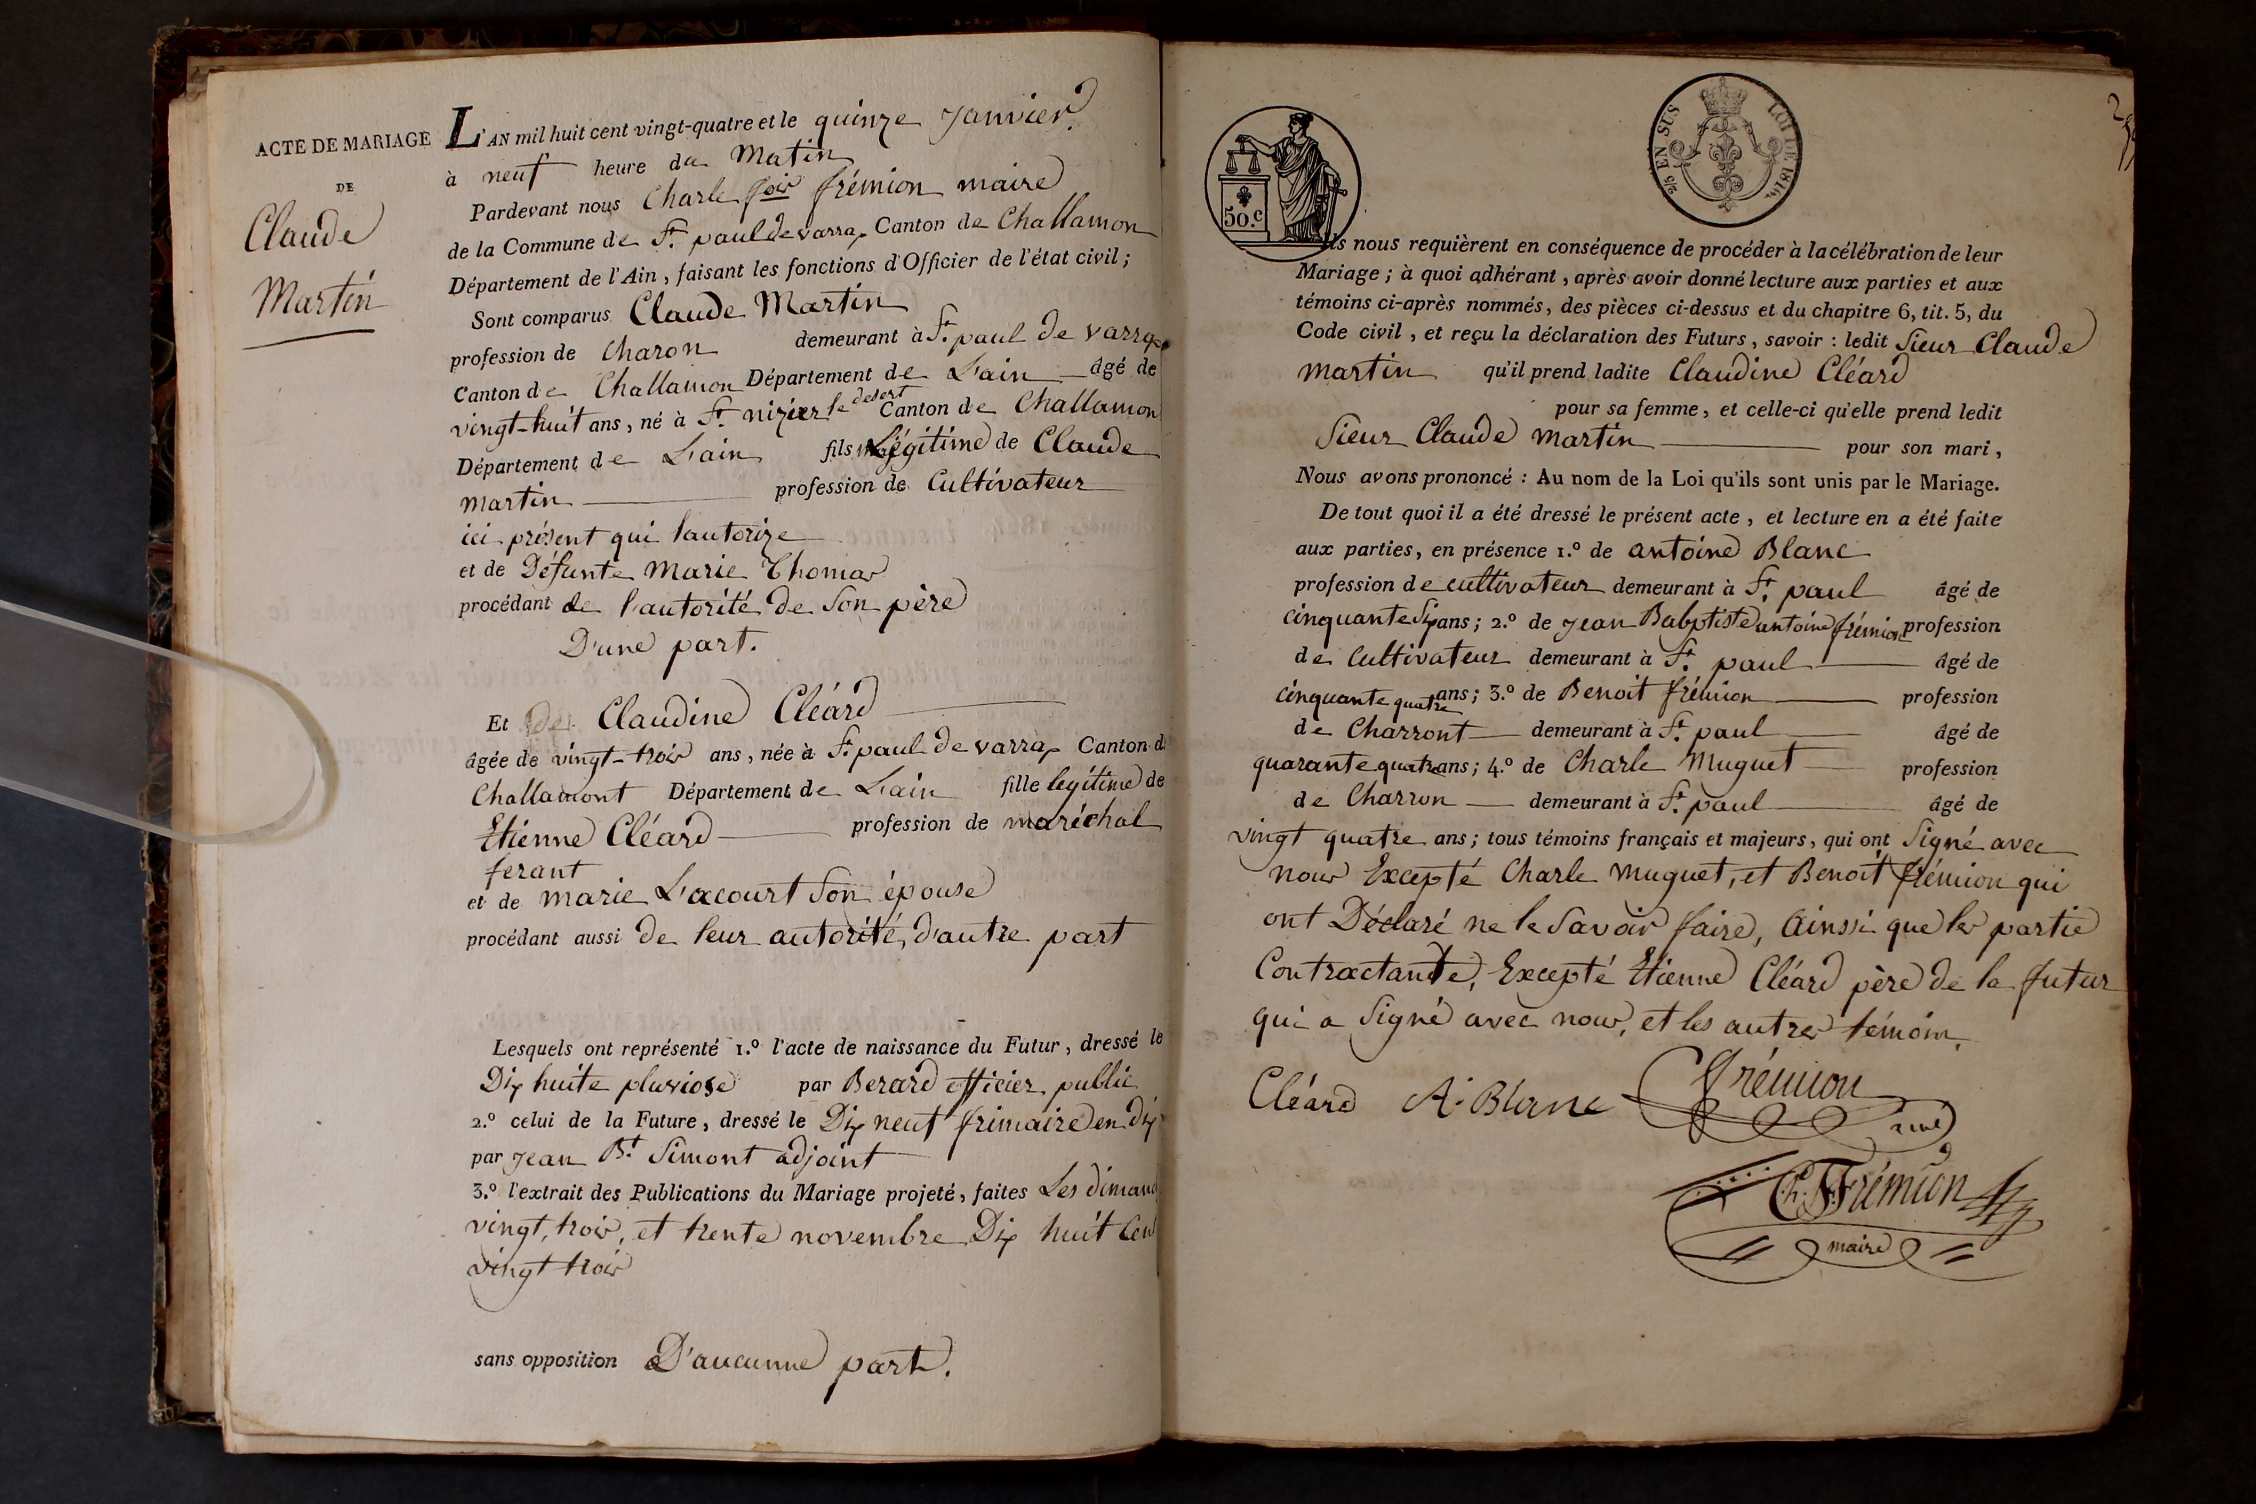 ACTE DE MARIAGE
DE
Claude
Martin
L'AN mil huit cent vingt-quatre et le quinze Janvier
à neuf heure du Matin
Pardevant nous Charle fois frémion maire
de la Commune de St. paul de varrax Canton de Challamon
Département de l'Ain, faisant les fonctions d'Officier de l'état civil;
Sont comparus Claude Martin
profession de Charon demeurant à St. paul de varrax
Canton de Challamon Département de L'ain âgé de
vingt-huit ans, né à St. nizier le desert Canton de Challamon
Département de L'ain fils Légitime de Claude
martin profession de Cultivateur
ici présent qui l'autorize
et de Défunte Marie Thomas
procédant de l'autorité de Son père
D'une part.
Et de Claudine Cléard
âgée de vingt-trois ans, née à St. paul de varrax Canton d
Challamont Département de L'ain fille legitime de
Etienne Cléard profession de maréchal
ferant
et de marie Lacourt Son épouse
procédant aussi de leur autorité, d'autre part
Lesquels ont représenté 1.º l'acte de naissance du Futur, dressé le
Dix huite pluviose par Berard officier public
2.º celui de la Future, dressé le Dix neuf frimaire en dix
par Jean Bt. Simont adjoint
3.º l'extrait des Publications du Mariage projeté, faites Les dimanc
vingt, trois, et trente novembre Dix huit Cen
vingt trois
sans opposition D'aucunne part.
50.c
5/2 EN SUS
LOI DE 1816
Ils nous requièrent en conséquence de procéder à la célébration de leur
Mariage; à quoi adhérant, après avoir donné lecture aux parties et aux
témoins ci-après nommés, des pièces ci-dessus et du chapitre 6, tit. 5, du
Code civil, et reçu la déclaration des Futurs, savoir : ledit Sieur Claude
martin qu'il prend ladite Claudine Cléard
pour sa femme, et celle-ci qu'elle prend ledit
Sieur Claude martin pour son mari,
Nous avons prononcé : Au nom de la Loi qu'ils sont unis par le Mariage.
De tout quoi il a été dressé le présent acte, et lecture en a été faite
aux parties, en présence 1.º de antoine Blanc
profession de cultivateur demeurant à St. paul âgé de
cinquante Six ans; 2.º de Jean Babptiste antoine frémion profession
de Cultivateur demeurant à St. paul âgé de
cinquante quatre ans; 3.º de Benoit frémion profession
de Charront demeurant à St. paul âgé de
quarante quatre ans; 4.º de Charle Muguet profession
de Charron demeurant à St. paul âgé de
vingt quatre ans; tous témoins français et majeurs, qui ont Signé avec
nous Excepté Charle muguet, et Benoit frémion qui
ont Déclaré ne le Savoir faire, Ainssi que les partie
Contractante, Excepté Etienne Cléard père de la futur
qui a Signé avec nous, et les autres témoin.
Cléard A. Blanc frémion
ainé
Ch. F. Frémion
maire